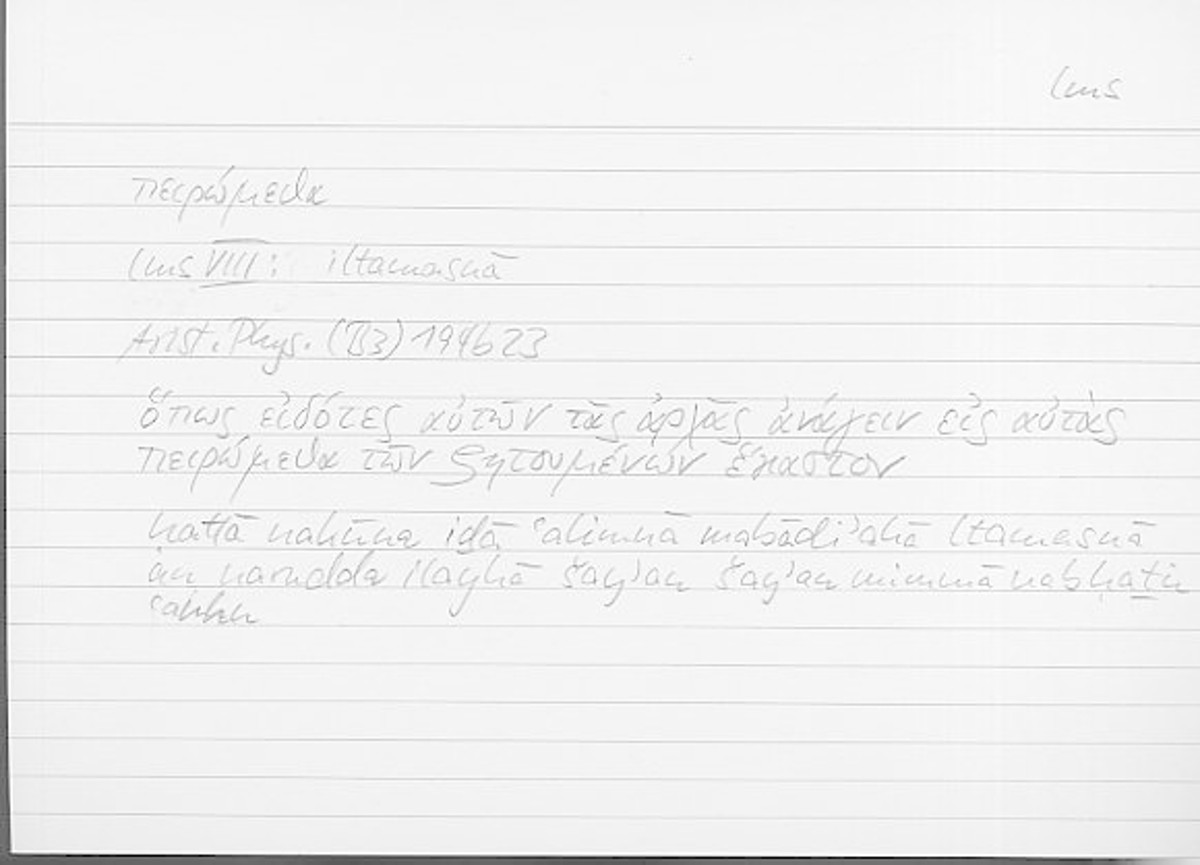 lms
πειρώμεθα
lms VIII: iltamasnā
Arist. Phys. (B3) 194b23
ὅπως εἰδότες αὐτῶν τὰς ἀρχὰς ἀνάγειν εἰς αὐτὰς
πειρώμεθα τῶν ζητουμένων ἕκαστον
ḥattā nakūna iḏā ʿalimnā mabādiʾahā ltamasnā
an narudda ilayhā šayʾan šayʾan mimmā nabḥaṯu
ʿanhu